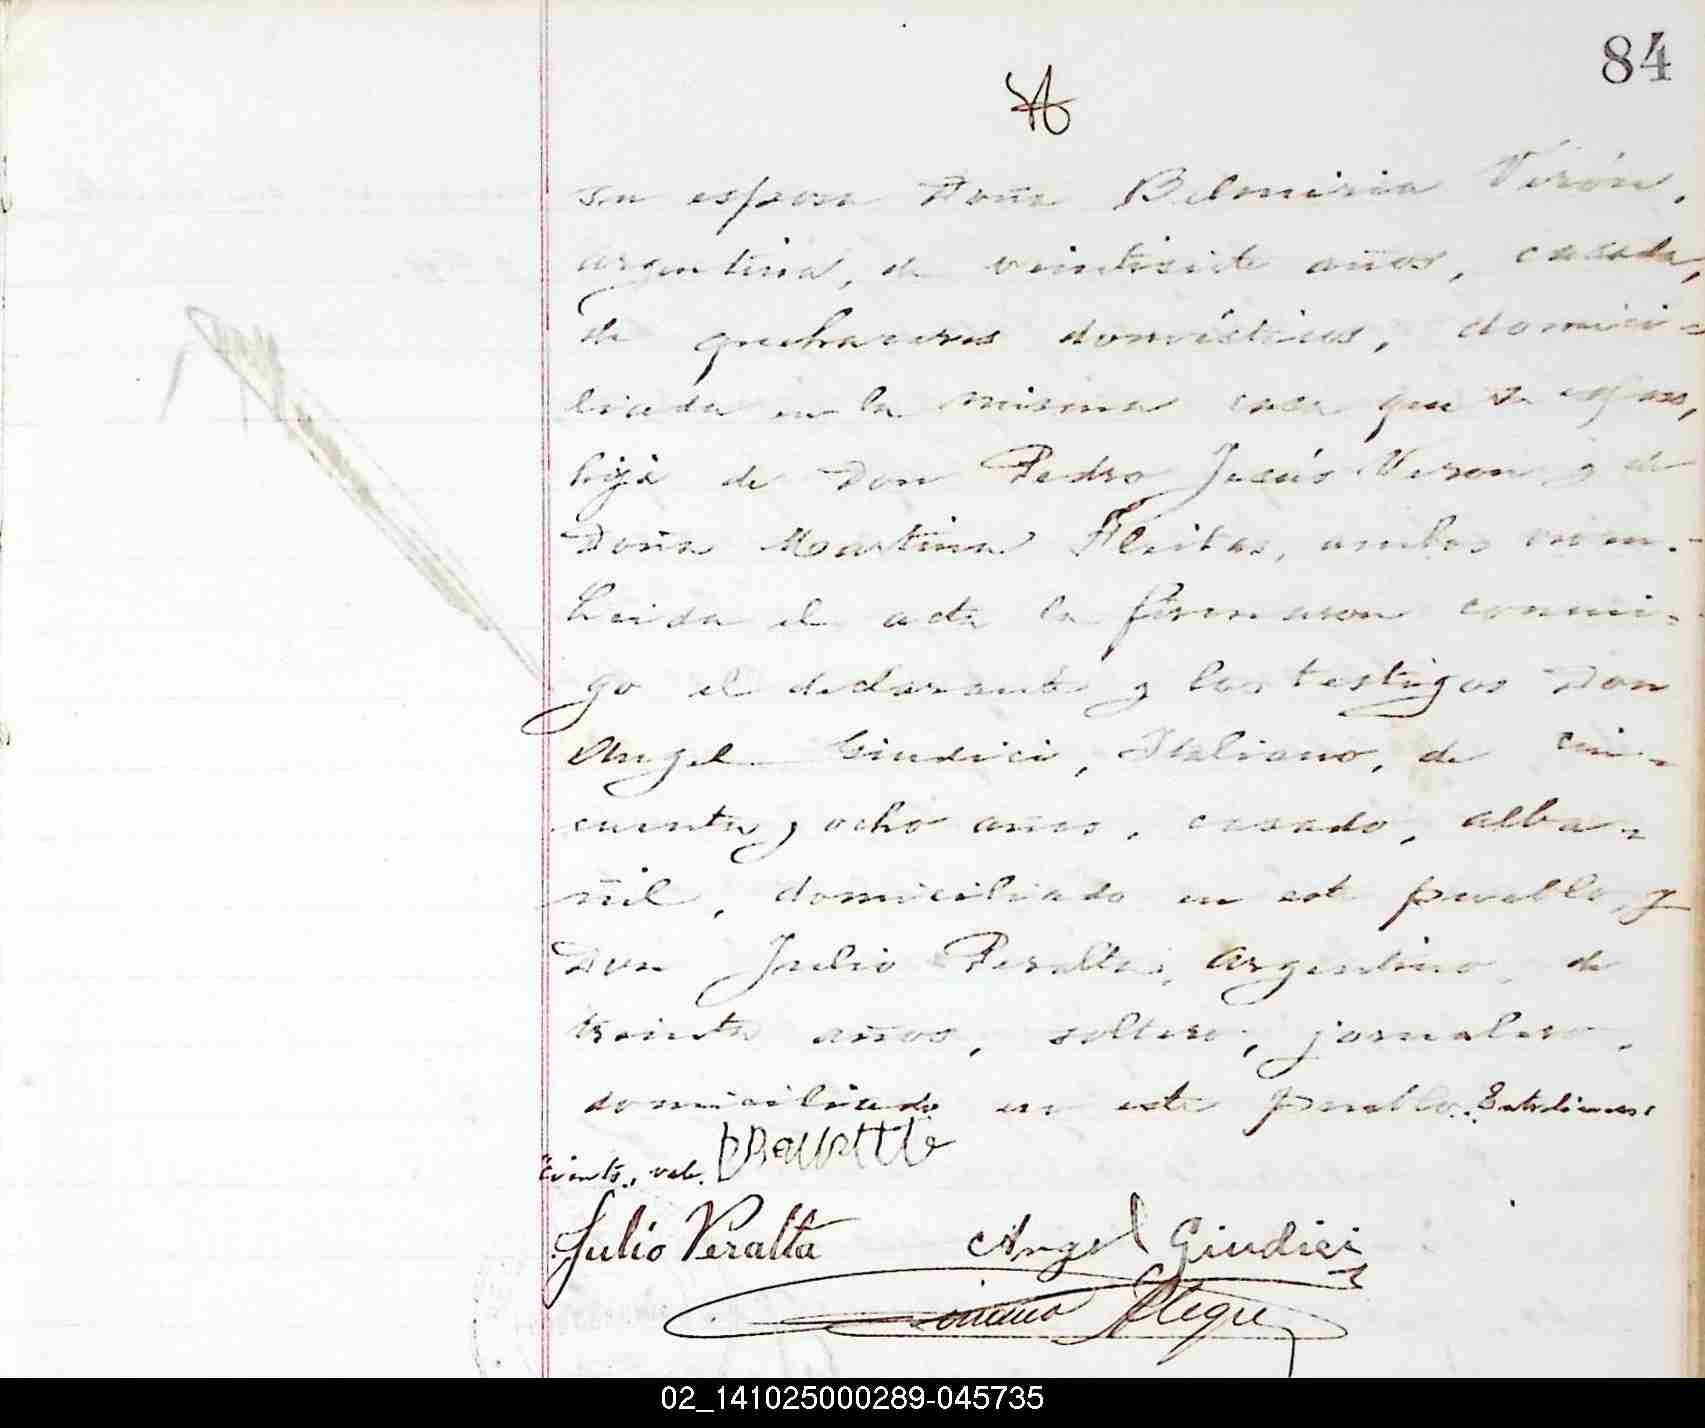 84
su esposa Doña Belmiria Verón,
argentina, de veintisiete años, casada,
de quehaceres domésticos, domici=
liada en la misma casa que su esposo,
hija de Don Pedro Jesús Veron y de
Doña Martina Fleitas, ambos
Leida el acta la firmaron conmi=
go el declarante y los testigos Don
Angel Giudici, Italiano, de cin=
cuenta y ocho años, casado, alba=
ñil, domiciliado en este pueblo, y
Don Julio Peralta, argentino, de
treinta años, soltero, jornalero,
domiciliado en este pueblo.
vale.
Julio Peralta Angel Giudici
Alegre
02_141025000289-045735